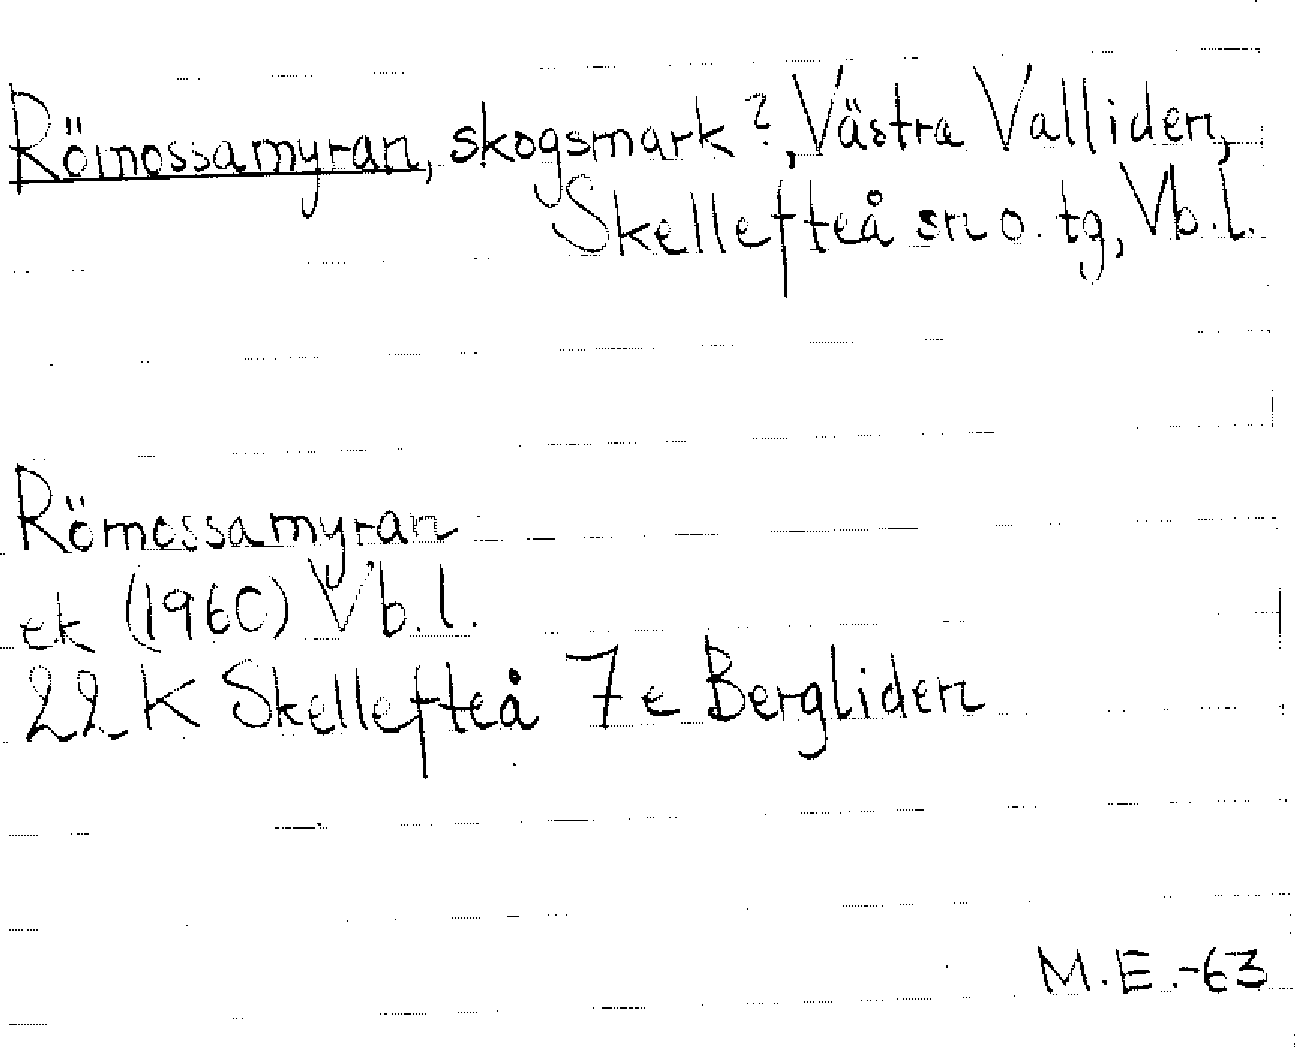 Römossamyran, skogsmark?, Västra Valliden,
Skellefteå sn o. tg, Vb.l.
Römossamyran
ek (1960) Vb.l.
22 K Skellefteå 7e Bergliden
M.E.-63